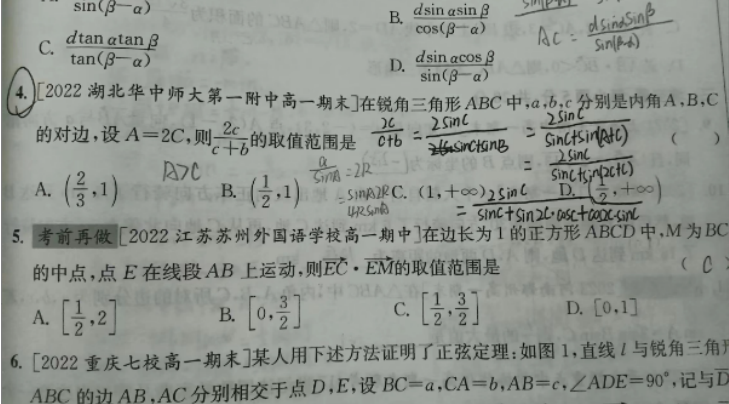 sin(β-α)
B. dsin αsin β / cos(β-α)
AC = dsinαsinβ / sin(β-α)
C. dtan αtan β / tan(β-α)
D. dsin αcos β / sin(β-α)
4. [2022 湖北华中师大第一附中高一期末]在锐角三角形 ABC 中,a,b,c 分别是内角 A,B,C
的对边,设 A=2C,则 2c/(c+b) 的取值范围是 ( )
2c/(c+b) = 2sinC/(sinC+sinB) = 2sinC/(sinC+sin(A+C))
= 2sinC/(sinC+sin(2C+C))
A>C
a/sinA = 2R
A. (2/3,1) B. (1/2,1) C. (1,+∞) D. (1/2,+∞)
5. 考前再做 [2022 江苏苏州外国语学校高一期中]在边长为 1 的正方形 ABCD 中,M 为 BC
的中点,点 E 在线段 AB 上运动,则EC·EM的取值范围是 ( C )
A. [1/2,2] B. [0,3/2] C. [1/2,3/2] D. [0,1]
6. [2022 重庆七校高一期末]某人用下述方法证明了正弦定理:如图 1,直线 l 与锐角三角形
ABC 的边 AB,AC 分别相交于点 D,E,设 BC=a,CA=b,AB=c,∠ADE=90°,记与D